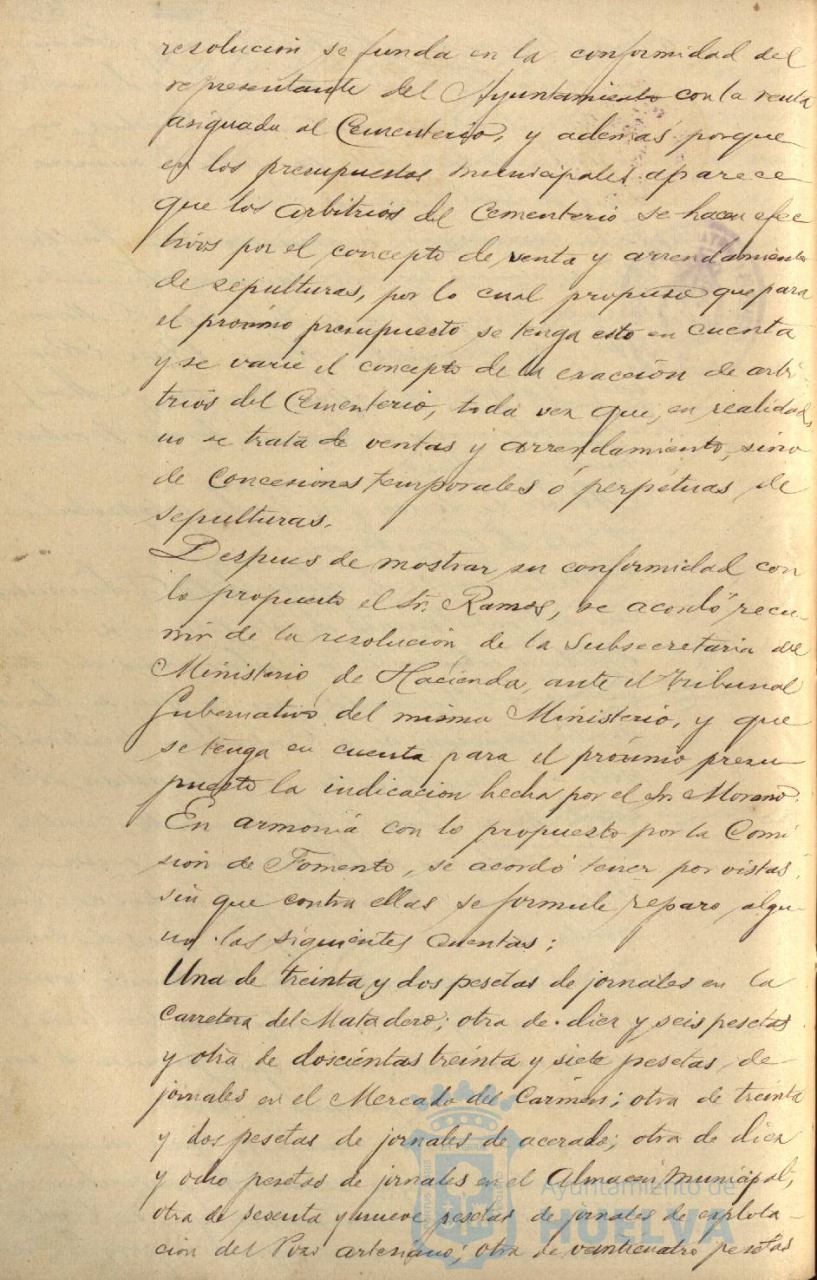 resolución se funda en la conformidad del
representante del Ayuntamiento con la renta
asignada al Cementerio, y además porque
en los presupuestos municipales aparece
que los arbitrios del Cementerio se hacen efec
tivos por el concepto de venta y arrendamiento
de sepulturas, por lo cual propuso que para
el próximo presupuesto se tenga esto en cuenta
y se varie el concepto de la exacción de arbi
trios del Cementerio, toda vez que, en realidad,
no se trata de ventas y arrendamiento, sino
de concesiones temporales ó perpétuas de
sepulturas.
Despues de mostrar su conformidad con
lo propuesto el Sr. Ramos, se acordó recu-
rrir de la resolución de la Subsecretaria del
Ministerio de Hacienda, ante el Tribunal
Gubernativo del mismo Ministerio, y que
se tenga en cuenta para el próximo presu-
puesto la indicacion hecha por el Sr. Moreno.
En armonia con lo propuesto por la Comi
sión de Fomento, se acordó tener por vistas,
sin que contra ellas se formule reparo algu-
no las siguientes cuentas:
Una de treinta y dos pesetas de jornales en la
Carretera del Matadero; otra de diez y seis pesetas
y otra de doscientas treinta y siete pesetas, de
jornales en el Mercado del Carmen; otra de treinta
y dos pesetas de jornales de acerado; otra de diez
y ocho pesetas de jornales en el Almacen Municipal;
otra de sesenta y nueve pesetas de jornales de explota-
cion del Pozo artesiano; otra de veinticuatro pesetas
Ayuntamiento de
HUELVA